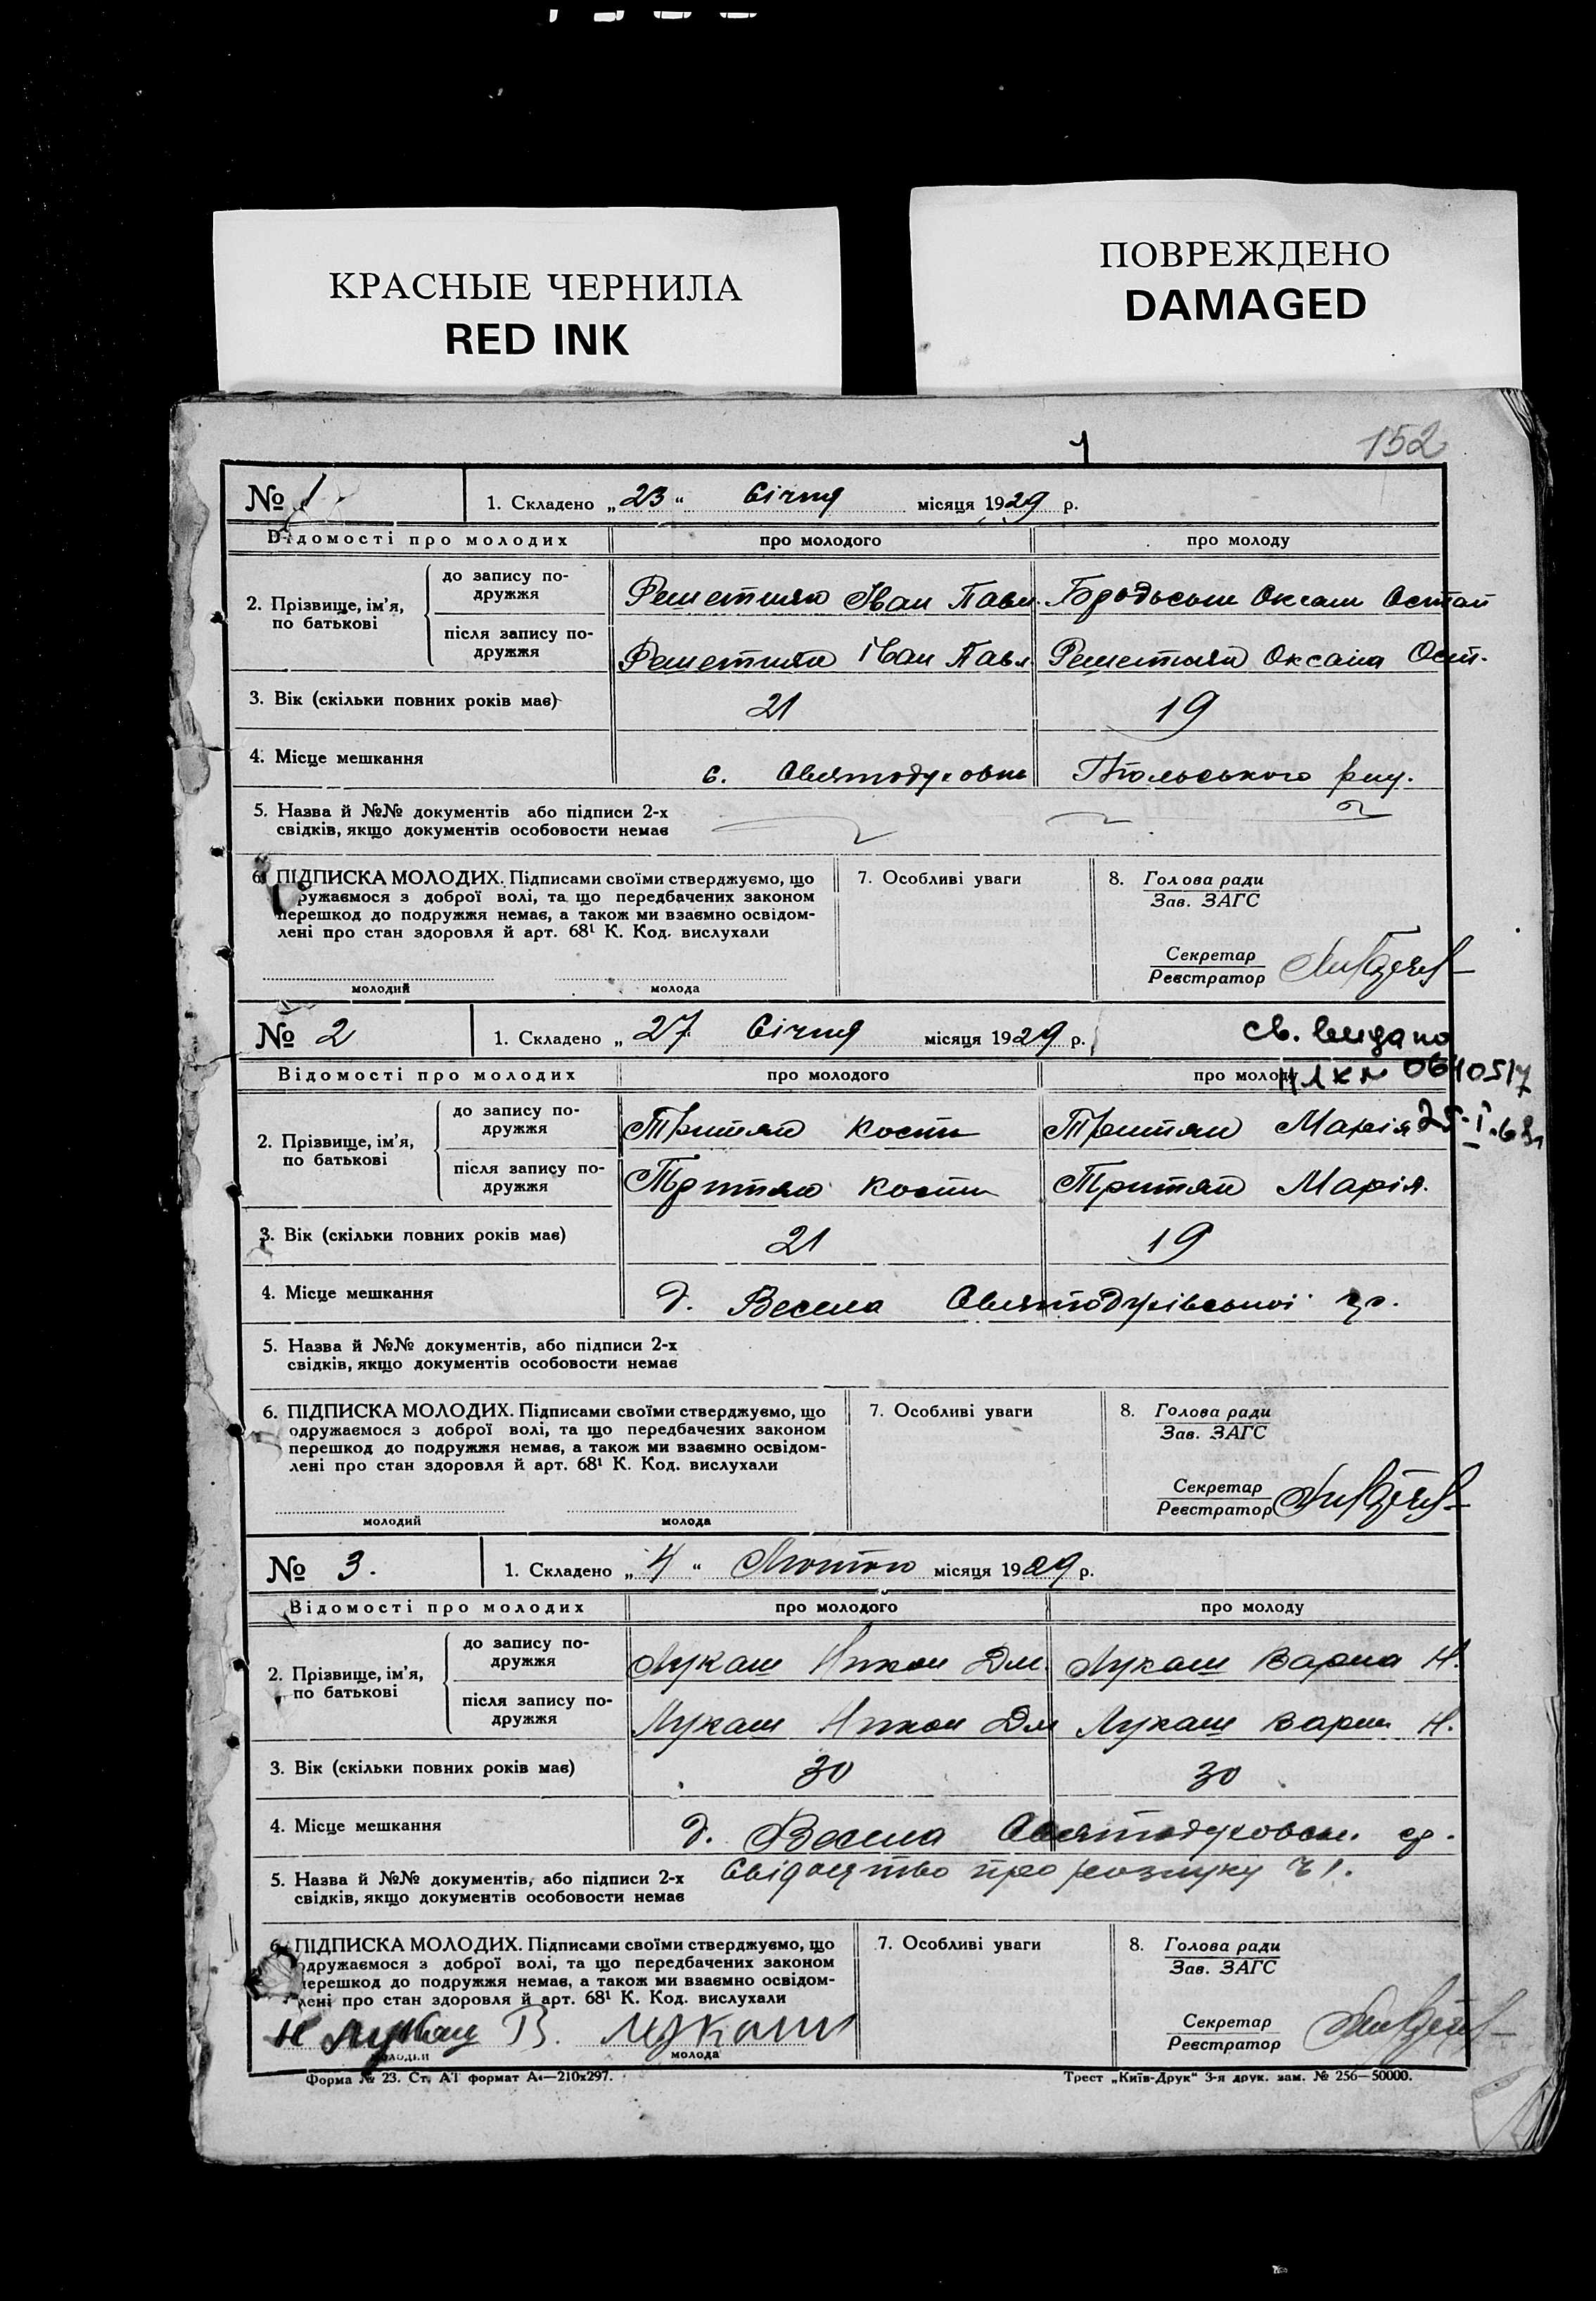 КРАСНЫЕ ЧЕРНИЛА
RED INK
ПОВРЕЖДЕНО
DAMAGED
1
152
№ 1
1. Складено „23“ Січня місяця 1929 р.
Відомості про молодих
про молодого
про молоду
2. Прізвище, ім’я, по батькові
до запису подружжя
Іван Павл.
Оксана Остап
після запису подружжя
Іван Павл.
Оксана Ост.
3. Вік (скільки повних років має)
21
19
4. Місце мешкання
с.
5. Назва й №№ документів або підписи 2-х
свідків, якщо документів особовости немає
6. ПІДПИСКА МОЛОДИХ. Підписами своїми стверджуємо, що
одружаємося з доброї волі, та що передбачених законом
перешкод до подружжя немає, а також ми взаємно освідом-
лені про стан здоровля й арт. 68¹ К. Код. вислухали
молодий
молода
7. Особливі уваги
8. Голова ради
Зав. ЗАГС
Секретар
Реєстратор
№ 2
1. Складено „27 Січня місяця 1929 р.
св. видано
0640517
Відомості про молодих
про молодого
про молоду
2. Прізвище, ім’я, по батькові
до запису подружжя
Марія
після запису подружжя
Марія.
3. Вік (скільки повних років має)
21
19
4. Місце мешкання
д. Весела
5. Назва й №№ документів, або підписи 2-х
свідків, якщо документів особовости немає
6. ПІДПИСКА МОЛОДИХ. Підписами своїми стверджуємо, що
одружаємося з доброї волі, та що передбачених законом
перешкод до подружжя немає, а також ми взаємно освідом-
лені про стан здоровля й арт. 68¹ К. Код. вислухали
молодий
молода
7. Особливі уваги
8. Голова ради
Зав. ЗАГС
Секретар
Реєстратор
№ 3.
1. Складено „4“ Лютого місяця 1929 р.
Відомості про молодих
про молодого
про молоду
2. Прізвище, ім’я, по батькові
до запису подружжя
Лукаш Никон Дм.
Лукаш Варка Н.
після запису подружжя
Лукаш Никон Дм
Лукаш Варка Н.
3. Вік (скільки повних років має)
30
30
4. Місце мешкання
д. Весела
5. Назва й №№ документів, або підписи 2-х
свідків, якщо документів особовости немає
Свідоцтво про розлуку ч 1.
6. ПІДПИСКА МОЛОДИХ. Підписами своїми стверджуємо, що
одружаємося з доброї волі, та що передбачених законом
перешкод до подружжя немає, а також ми взаємно освідом-
лені про стан здоровля й арт. 68¹ К. Код. вислухали
Н Лукаш В. Лукаш
молодий
молода
7. Особливі уваги
8. Голова ради
Зав. ЗАГС
Секретар
Реєстратор
Форма № 23. Ст. АТ формат А₄—210x297.
Трест „Київ-Друк“ 3-я друк. зам. № 256—50000.